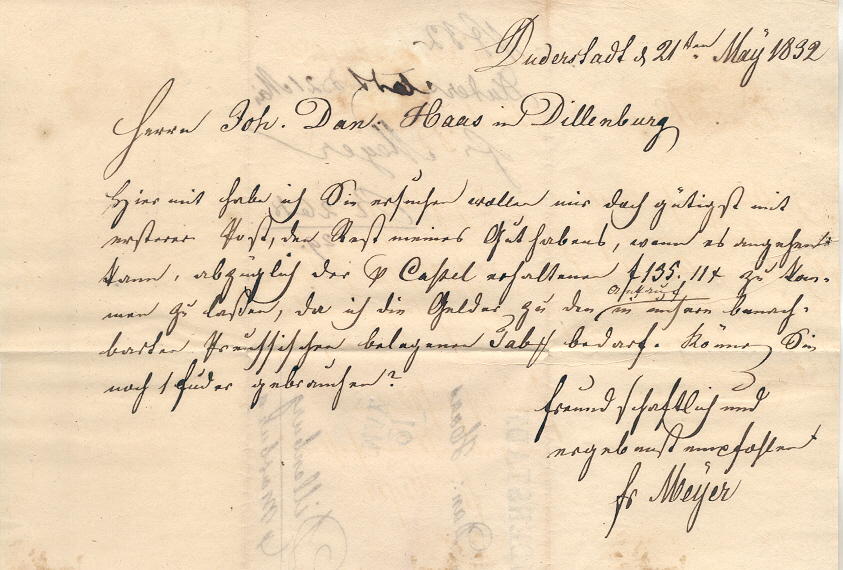 Duderstadt d 21ten Maÿ 1832
Herrn Joh. Dan. Haas in Dillenburg
Hiermit habe ich Sie ersuchen wollen mir doch gütigst mit
ersterer Post, den Rest meines Guthabens, wenn es angehen
kann, abzüglich der p Cassel erhaltenen f 135. 11 x zu kom-
men zu laßen, da ich die Gelder zu den
Ankauf
in unsern benach-
barten Preussischen belegenen bedarf. Können Sie
noch 1 Fuder gebrauchen?
freundschaftlich und
ergebenst empfohlen
fr Meÿer